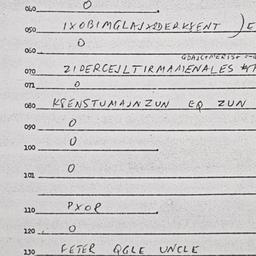 040 O
050 IXOBIMGLAJXDERKSENT
060 O
070 ZIDERCEJLTIRMAMENALES
071 O
080 KSENSTUMAJNZUN EQ ZUN
090 O
100 O
101 O
110 PXOR
120 O
130 FETER QGLE UNCLE